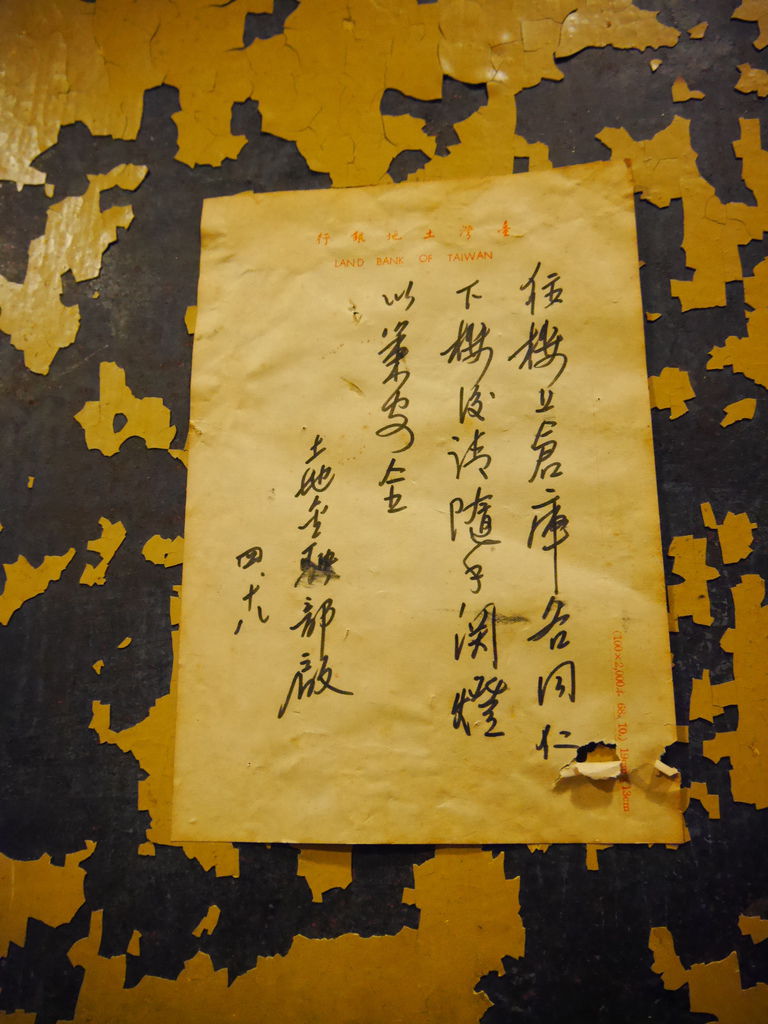 臺灣土地銀行
LAND BANK OF TAIWAN
往樓上倉庫各同仁
下樓後請隨手関燈
以策安全
土地金融部啟
四.十八
(100×2,000本 68. 10.) 19 13cm